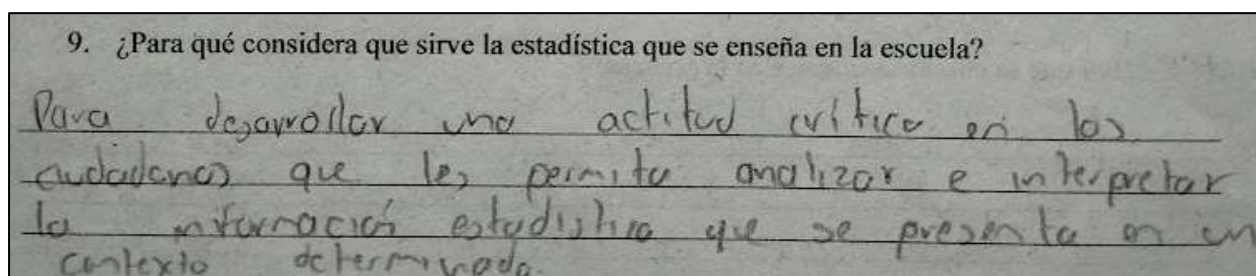 9. ¿Para qué considera que sirve la estadística que se enseña en la escuela?
Para desarrollar una actitud crítica en los
ciudadanos que les permita analizar e interpretar
la información estadística que se presenta en un
contexto determinado.